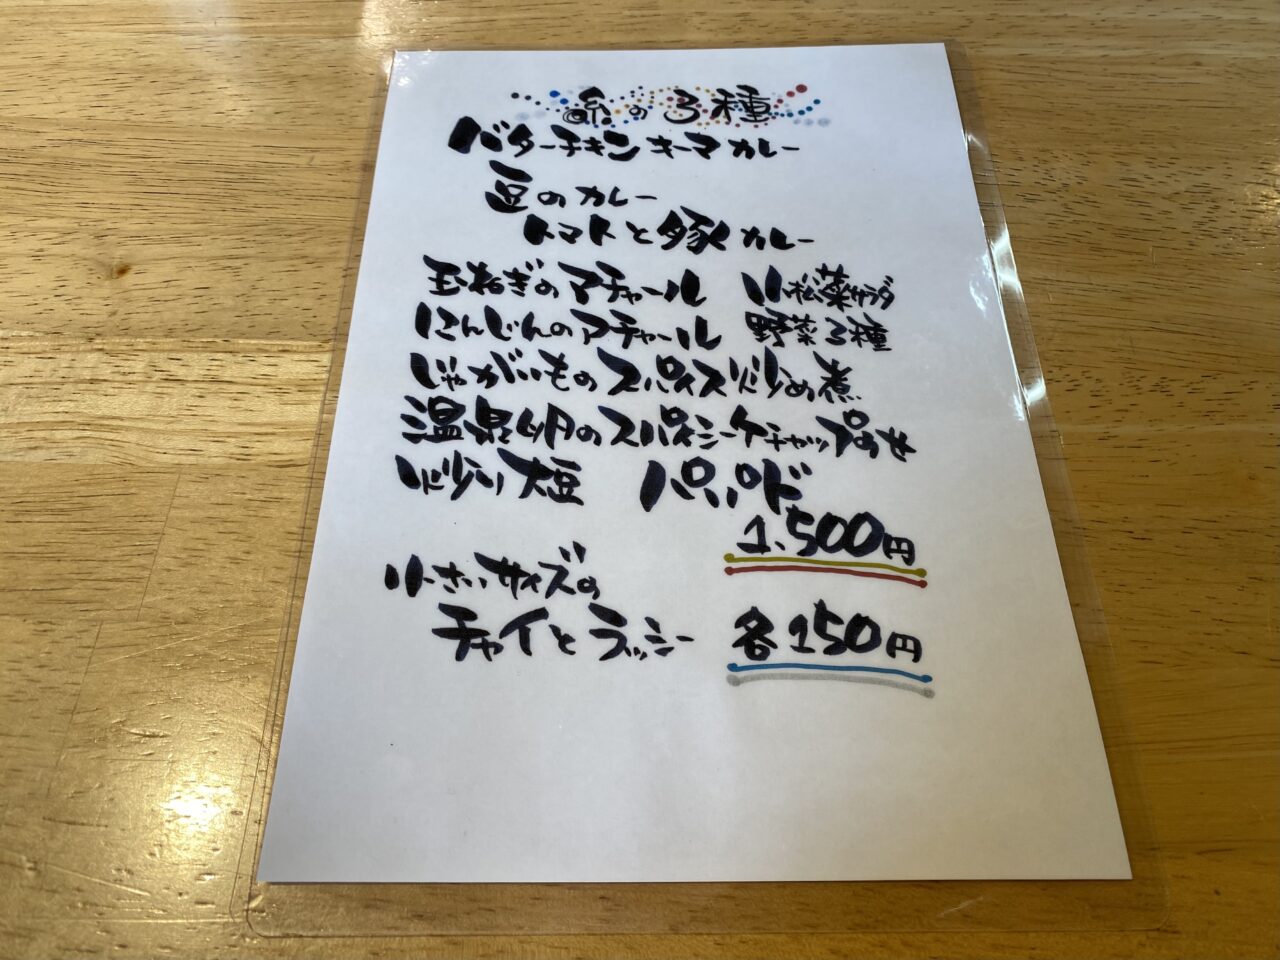 の3種
バターチキンキーマカレー
豆のカレー
トマトと豚カレー
玉ねぎのアチャール 小松菜サラダ
にんじんのアチャール 野菜3種
じゃがいものスパイス炒め煮
温泉卵のスパイシーケチャップのせ
炒り大豆 パパド
1,500円
小さいサイズの
チャイとラッシー 各150円